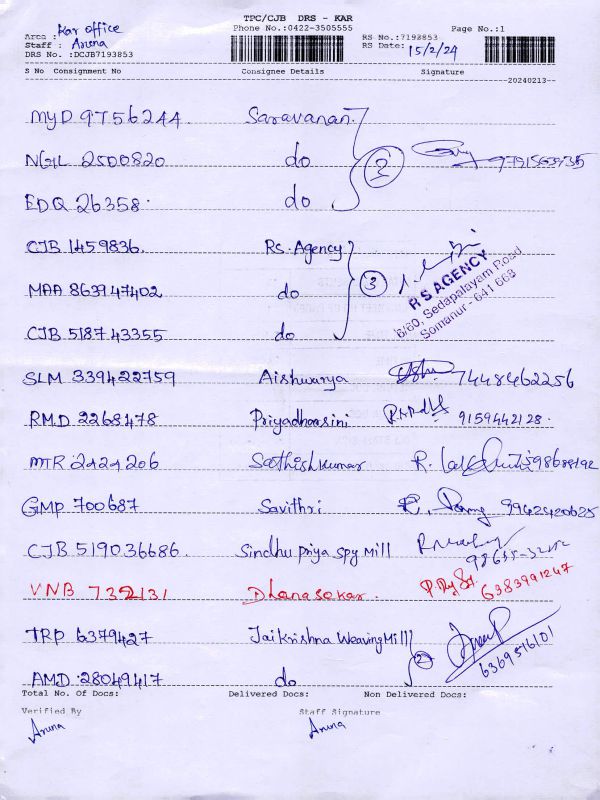 TPC/CJB DRS - KAR
Phone No.:0422-3505555
Page No.:1
Area : Kar office
Staff : Aruna
DRS No. :DCJB7193853
RS No.:7193853
RS Date: 15/2/24
S No Consignment No Consignee Details Signature
20240213
MYD 9756244. Saravanan
NGL 2500820 do 3
EDQ 26358. do
CJB 1459836. Rs. Agency
MAA 863947402 do 3
CJB 518743355 do
R S AGENCY
6/60, Sedapalayam Road
Somanur - 641 668
SLM 339422759 Aishwarya 7448462256
RMD 2268478 Priyadharsini 9159442128.
MTR 2424206 Sathishkumar
GMP 700687 Savithri 9942420625
CJB 519036686. Sindhu priya spy Mill
VNB 732131 Dhanasekar. 6383991247
TRP 6379427 Jai Krishna Weaving Mill 2
6369516101
AMD 28049417 do
Total No. Of Docs: Delivered Docs: Non Delivered Docs:
Verified By Staff Signature
Aruna Aruna